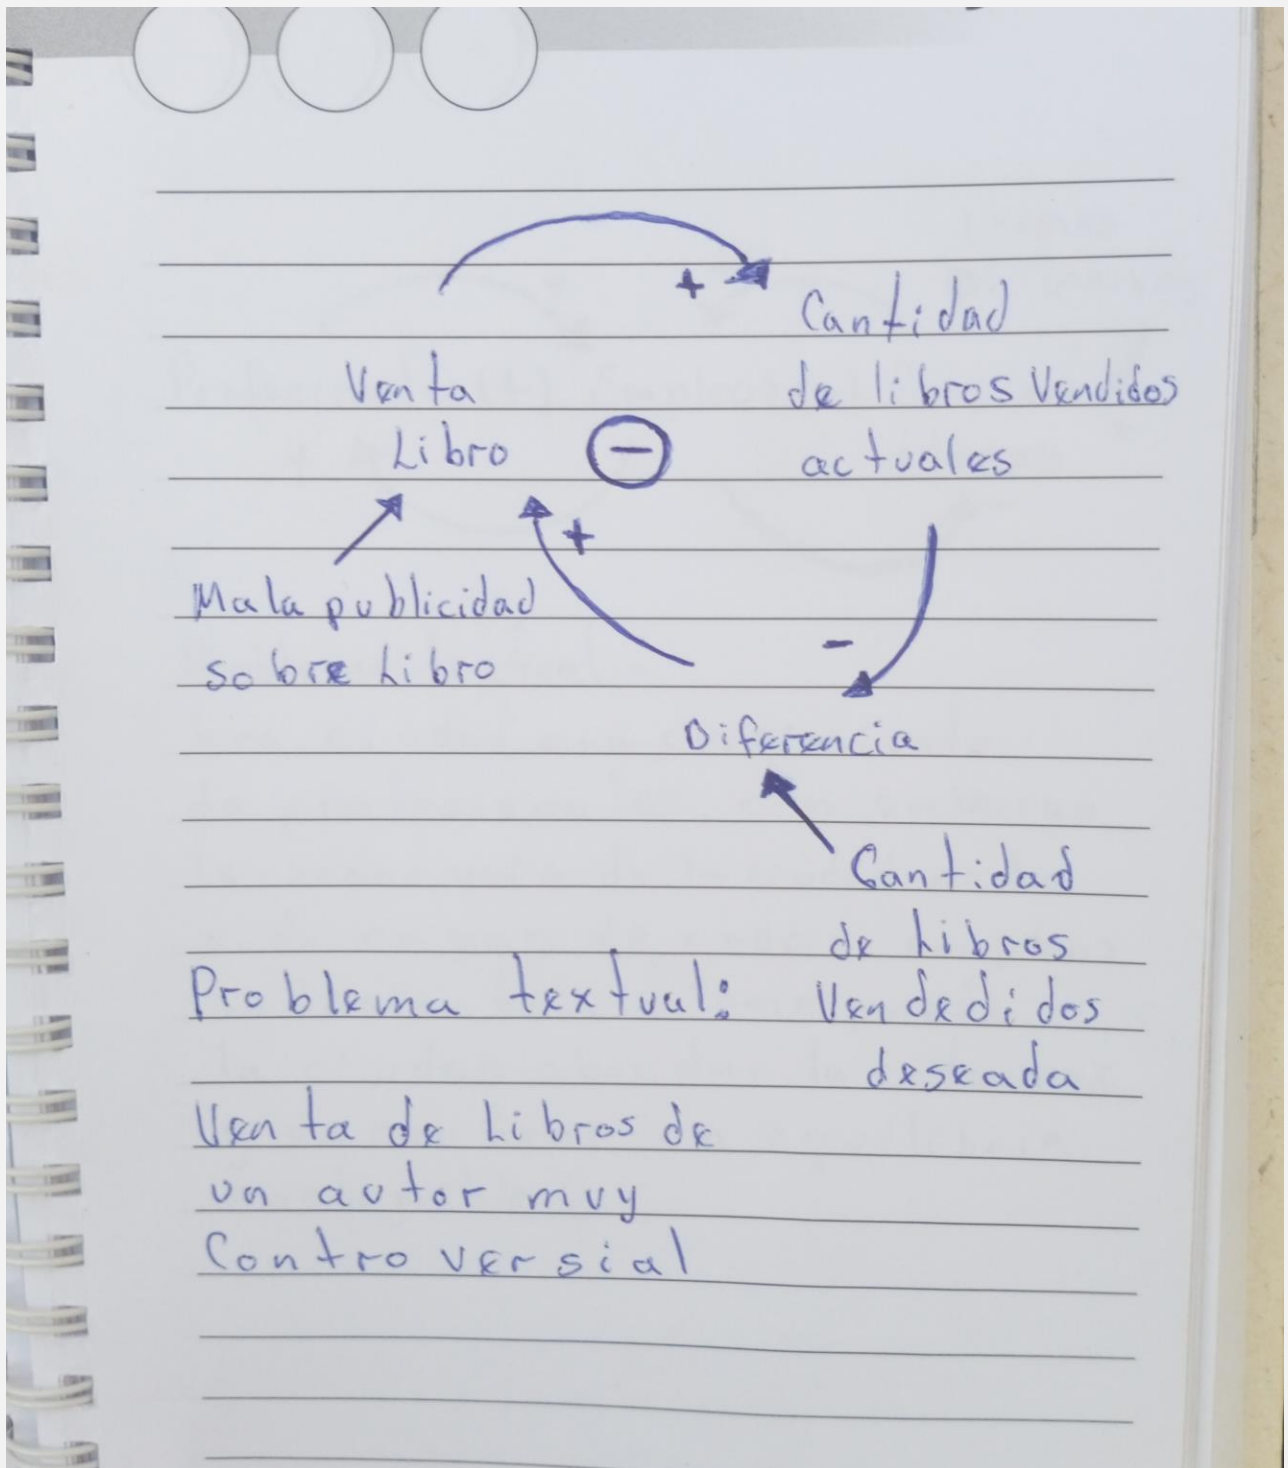 +
Cantidad
de libros Vendidos
actuales
Venta
Libro
-
+
Mala publicidad
sobre Libro
-
Diferencia
Cantidad
de Libros
Vendedidos
deseada
Problema textual:
Venta de Libros de
un autor muy
Controversial